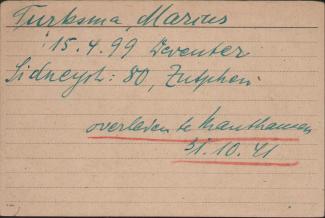 Turksma, Marius
15.4.99 Deventer
Sidneystr: 80, Zutphen
overleden te Mauthausen
31.10.41